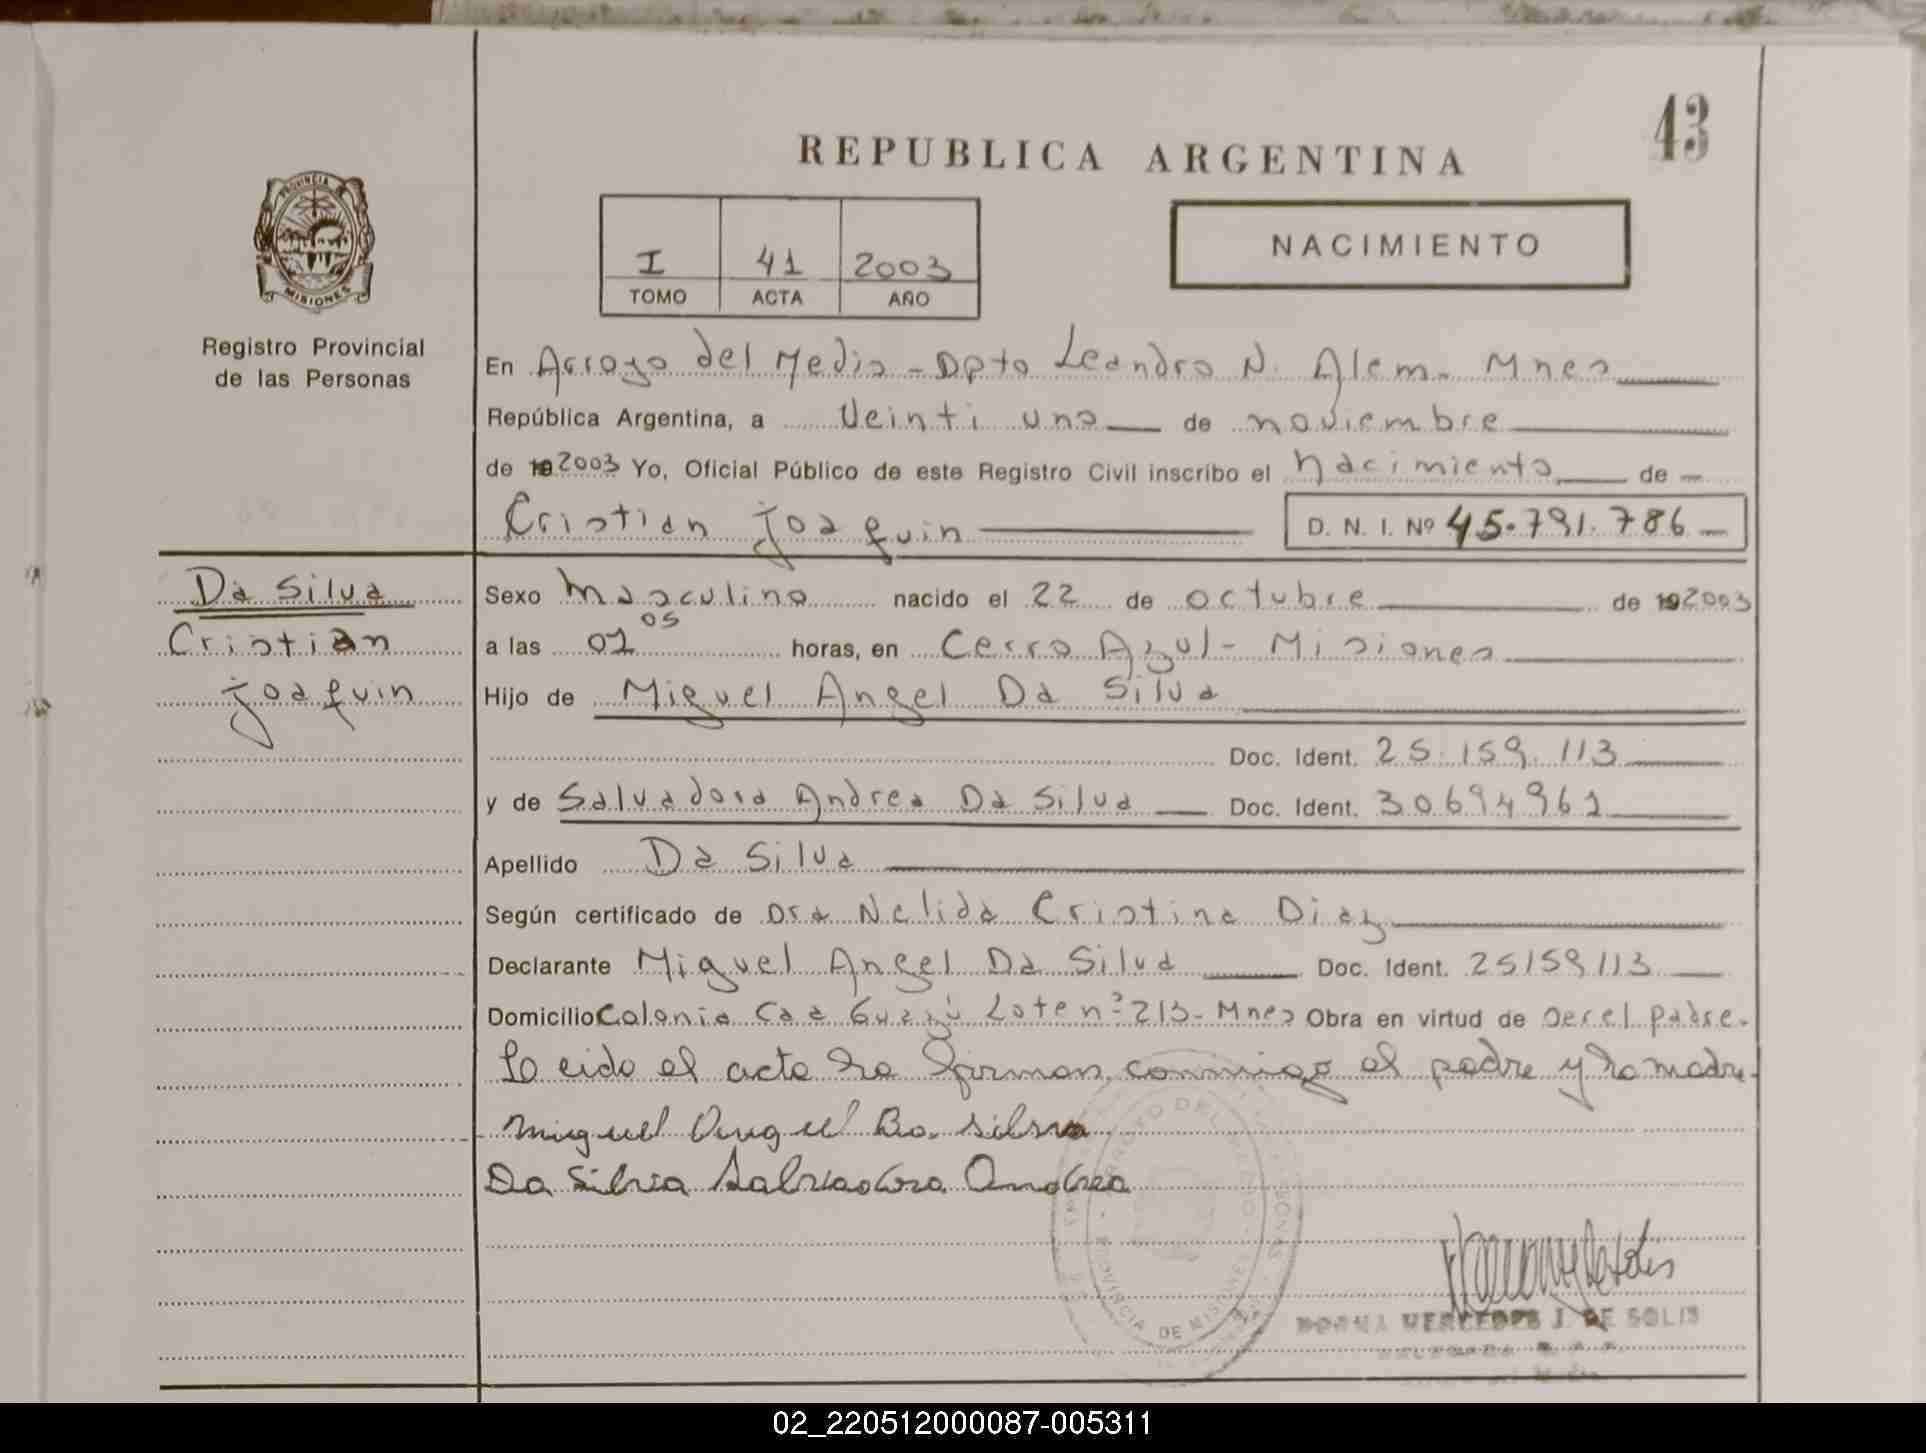 43
REPUBLICA ARGENTINA
PROVINCIA DE
MISIONES
I 41 2003
TOMO ACTA AÑO
NACIMIENTO
Registro Provincial
de las Personas
En Arroyo del Medio - Dpto Leandro N. Alem. Mnes
República Argentina, a Veinti uno de noviembre
de 19 2003 Yo, Oficial Público de este Registro Civil inscribo el nacimiento de
Cristian Joaquin D. N. I. Nº 45.791.786
Da Silva
Cristian
Joaquin
Sexo Masculino nacido el 22 de octubre de 19 2003
a las 01 05 horas, en Cerro Azul - Misiones
Hijo de Miguel Angel Da Silva
Doc. Ident. 25.159.113
y de Salvadora Andrea Da Silva Doc. Ident. 30694961
Apellido Da Silva
Según certificado de Dra Nelida Cristina Diaz
Declarante Miguel Angel Da Silva Doc. Ident. 25159113
Domicilio Colonia Caa Guazú Lote nº 213 - Mnes Obra en virtud de ser el padre.
Leido el acta la firman conmigo el padre y la madre.
Miguel Angel Da Silva
Da Silva Salvadora Andrea
ARROYO DEL MEDIO
PROVINCIA DE MISIONES
NORMA MERCEDES J. DE SOLIS
02_220512000087-005311